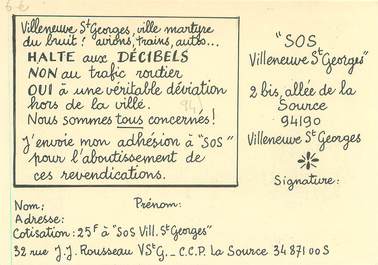 6 €
Villeneuve St Georges, ville martyre
du bruit : avions, trains, autos...
HALTE aux DÉCIBELS
NON au trafic routier
OUI à une véritable déviation
hors de la ville.
94)
Nous sommes tous concernés!
J'envoie mon adhésion à "SOS"
pour l'aboutissement de
ces revendications.
"SOS
Villeneuve St Georges"
2 bis, allée de la
Source
94190
Villeneuve St Georges
Signature:
Nom: Prénom:
Adresse:
Cotisation: 25F à "SOS Vill. St Georges"
32 rue J.J. Rousseau VStG. _ C.C.P. La Source 34 871 00 S